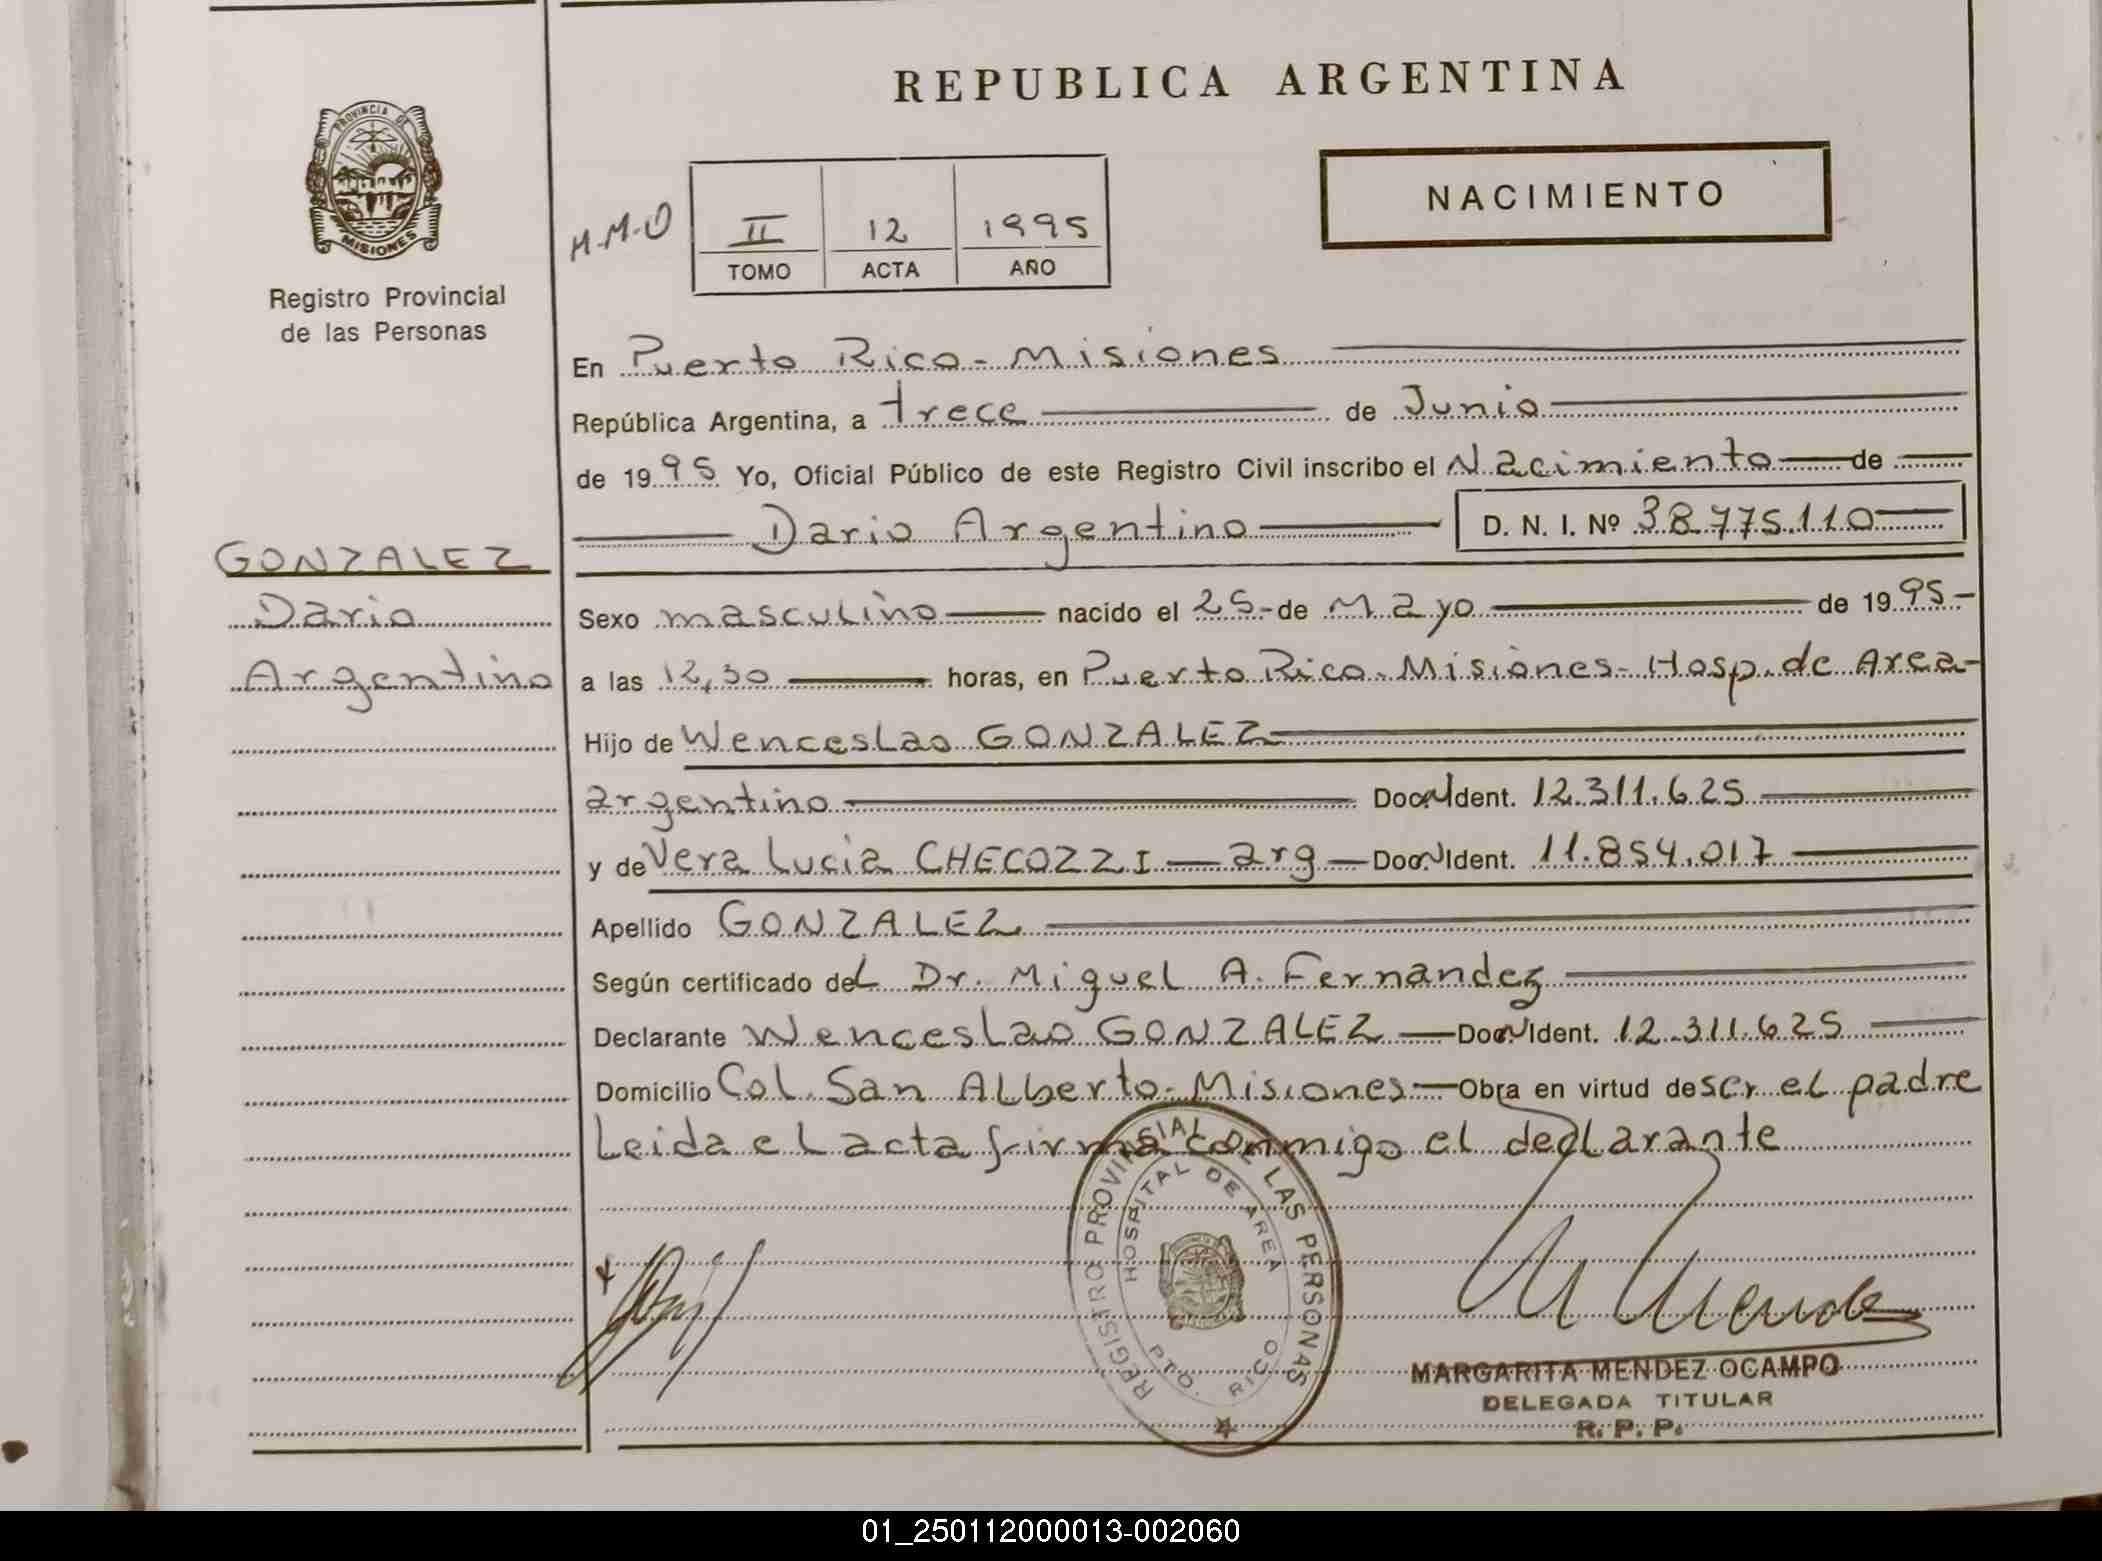 REPUBLICA ARGENTINA
PROVINCIA DE
MISIONES
Registro Provincial
de las Personas
H.M.O
II 12 1995
TOMO ACTA AÑO
NACIMIENTO
En Puerto Rico - Misiones
República Argentina, a trece de Junio
de 1995 Yo, Oficial Público de este Registro Civil inscribo el Nacimiento de
Dario Argentino D. N. I. Nº 38.775.110
GONZALEZ
Dario
Argentino
Sexo masculino nacido el 25 - de Mayo de 1995 -
a las 12,30 horas, en Puerto Rico - Misiones - Hosp. de Area -
Hijo de Wenceslao GONZALEZ
argentino Doc. N Ident. 12.311.625
y de Vera Lucia CHECOZZI — arg — Doc. N Ident. 11.854.017
Apellido GONZALEZ
Según certificado del Dr. Miguel A. Fernandez
Declarante Wenceslao GONZALEZ — Doc. N Ident. 12.311.625
Domicilio Col. San Alberto - Misiones — Obra en virtud de ser el padre
Leida el acta firma conmigo el declarante
REGISTRO PROVINCIAL DE LAS PERSONAS
HOSPITAL DE AREA
PTO. RICO
MARGARITA MENDEZ OCAMPO
DELEGADA TITULAR
R. P. P.
01_250112000013-002060